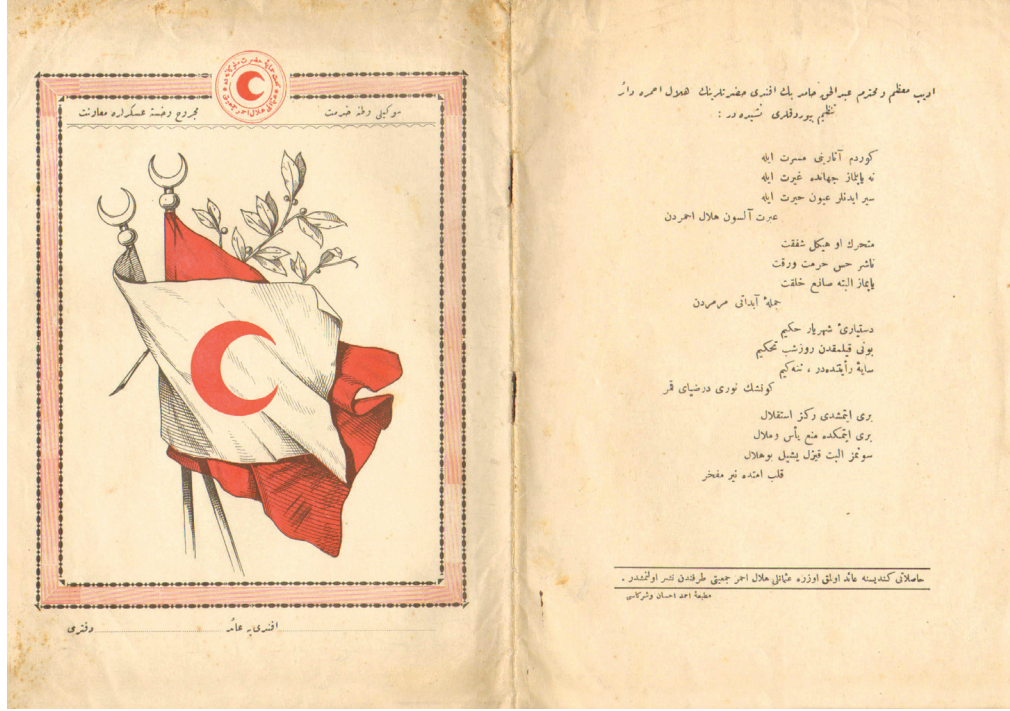 مجروح وخسته عسكرلره معاونت
افندی‌یه عائد
دفتری
اديب معظم ومحترم عبدالحق حامد بك افندی حضرتلرينك هلال احمره دائر
تنظيم بيوردقلری نشيده در :
كوردم آثارينی مسرت ايله
نه ياپيلماز جهانده غيرت ايله
سير ايدنلر عيون حيرت ايله
عبرت آلسون هلال احمردن
متحرك او هيكل شفقت
ناشر حس حرمت ورقت
ياپماز البته صانع خلقت
جملهٔ آبداتی مرمردن
دستياریٔ شهريار حكيم
بونی قيلمقدن روزشب تحكيم
سايهٔ رأيتنده‌در ، ته‌كيم
كونشك نوری درضيای قمر
بری ايتمشدی ركز استقلال
بری ايتمكده منع يأس وملال
سونمز البت قيزل يشيل بوهلال
قلب امتده نير مفخر
حاصلاتی كنديسنه عائد اولمق اوزره عثمانلی هلال احمر جمعيتی طرفندن نشر اولنمشدر .
مطبعهٔ احمد احسان وشركاسی